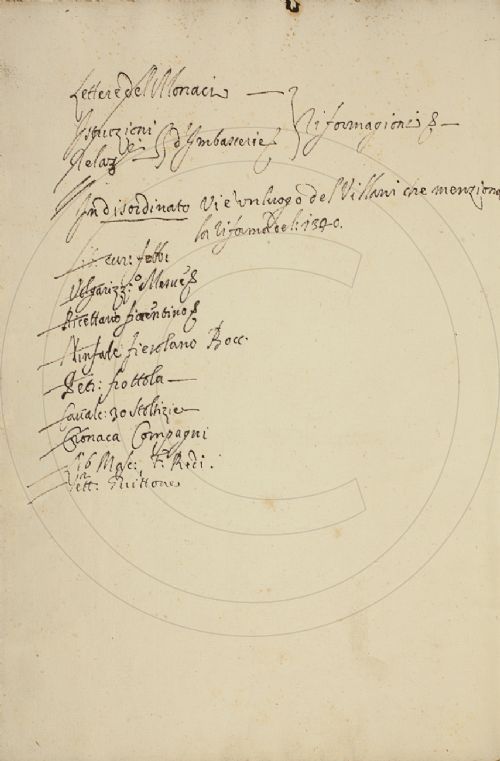 Lettere del Monaci —
Istruzioni
Relaz.ni d'Imbascerie Riformagioni —
In disordinato Vi è un luogo del Villani che menziona
la Riforma del: 1340.
Lib: cur: febbr:
Volgarizz:o
Ricettario fiorentino
Ninfale fiesolano Bocc.
Petr: frottola —
Cavalc: 30 stoltizie
Cronaca Compagni
Lib Masc: F. Redi.
Lett: Guittone